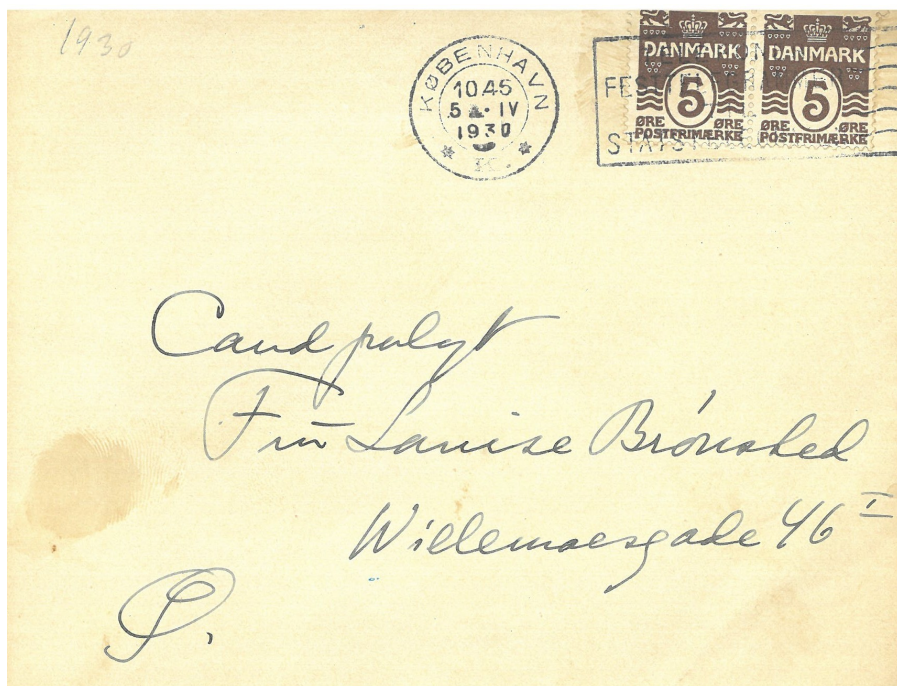 1930
KØBENHAVN
10.45
5 IV
1930
DANMARK
5
ØRE ØRE
POSTFRIMÆRKE
DANMARK
5
ØRE ØRE
POSTFRIMÆRKE
Cand polyt
Frū Louise Brónsted
Willemoesgade 46 I
Ø.